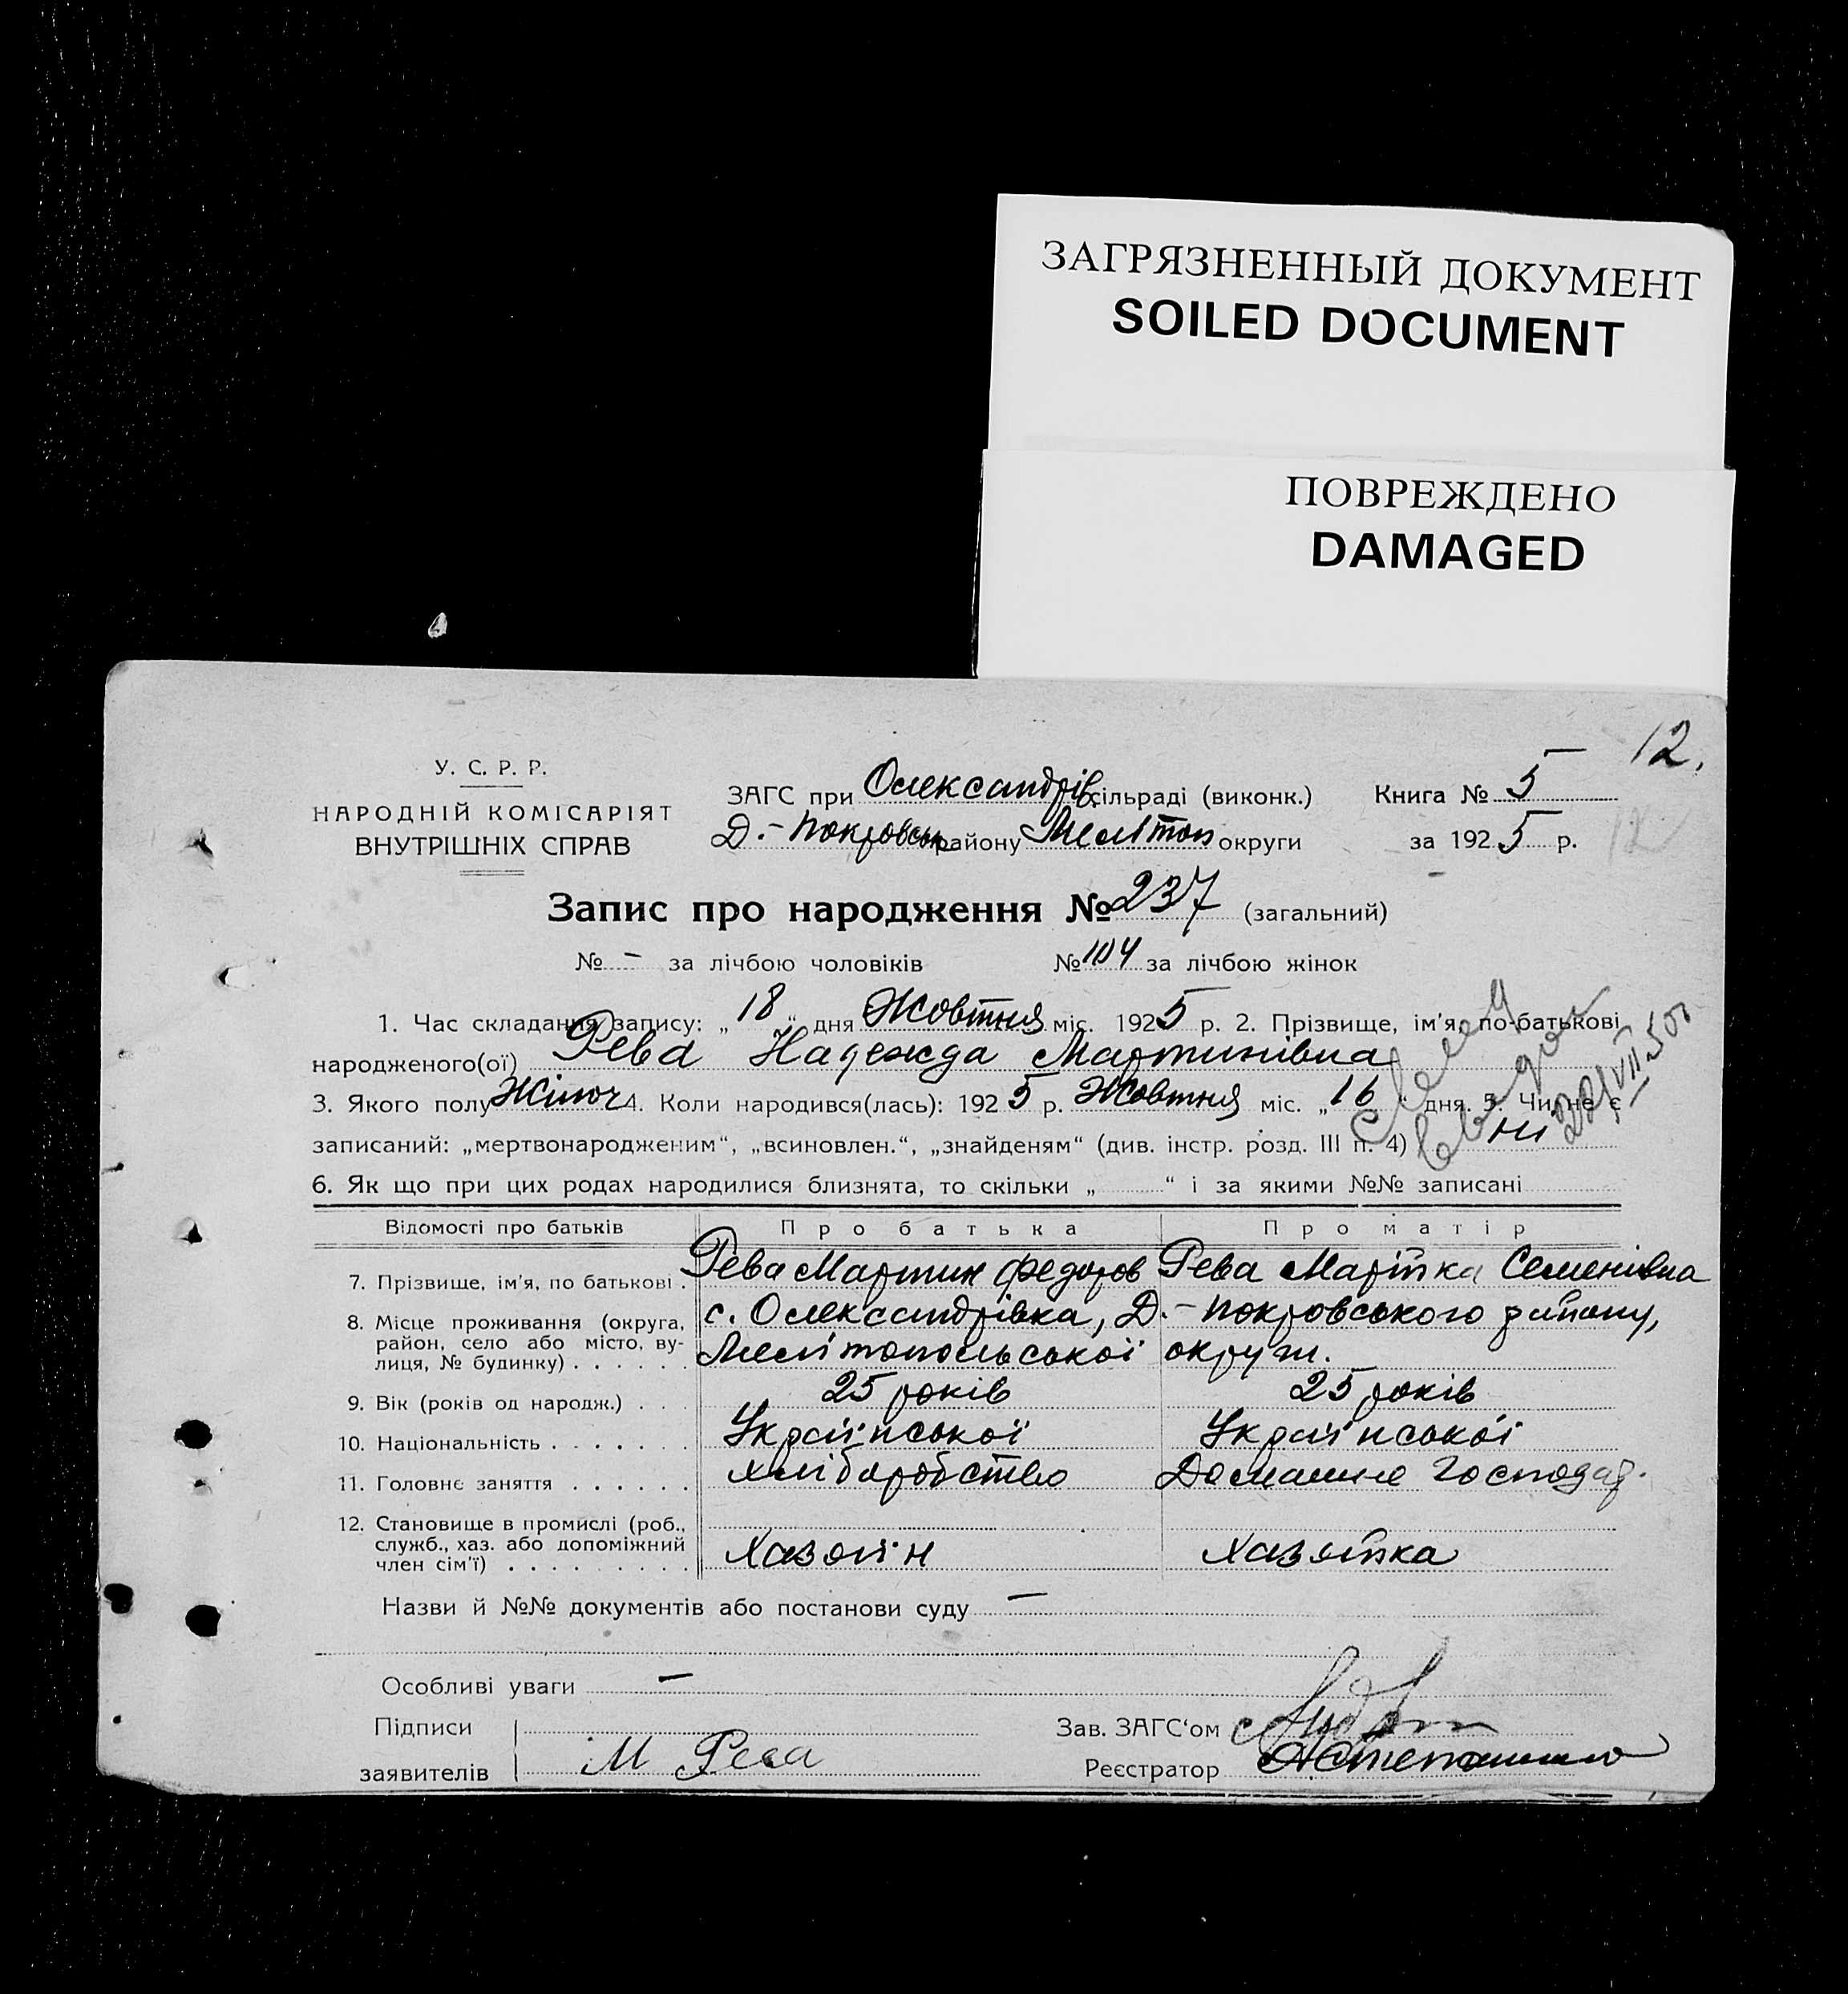 ЗАГРЯЗНЕННЫЙ ДОКУМЕНТ
SOILED DOCUMENT
ПОВРЕЖДЕНО
DAMAGED
12.
У. С. Р. Р.
НАРОДНІЙ КОМІСАРІЯТ
ВНУТРІШНІХ СПРАВ
ЗАГС при Олександрів сільраді (виконк.)
Д.-Покровськ району Мелітоп округи
Книга № 5
за 1925 р.
12
Запис про народження № 237 (загальний)
№ – за лічбою чоловіків № 104 за лічбою жінок
1. Час складання запису: „18“ дня Жовтня міс. 1925 р. 2. Прізвище, ім'я, по-батькові
народженого(ої) Рева Надежда Мартинівна
3. Якого полу Жіноч 4. Коли народився(лась): 1925 р. Жовтня міс. „16“ дня. 5. Чи не є
записаний: „мертвонародженим“, „всиновлен.“, „знайденям“ (див. інстр. розд. III п. 4) ні
6. Як що при цих родах народилися близнята, то скільки „ “ і за якими №№ записані
Відомості про батьків Про батька Про матір
7. Прізвище, ім'я, по батькові . Рева Мартин Федоров Рева Марійка Семенівна
8. Місце проживання (округа, район, село або місто, вулиця, № будинку) . . . . . . с. Олександрівка, Д.-Покровського району,
Мелітопольської округи.
9. Вік (років од народж.) . . . 25 років 25 років
10. Національність . . . . . . . Української Української
11. Головне заняття . . . . . . хліборобство Домашнє Господар.
12. Становище в промислі (роб., служб., хаз. або допоміжний член сім'ї) . . . . . . . . . Хазяїн Хазяйка
Назви й №№ документів або постанови суду –
Особливі уваги –
Підписи
заявителів М Рева
Зав. ЗАГС'ом
Реєстратор